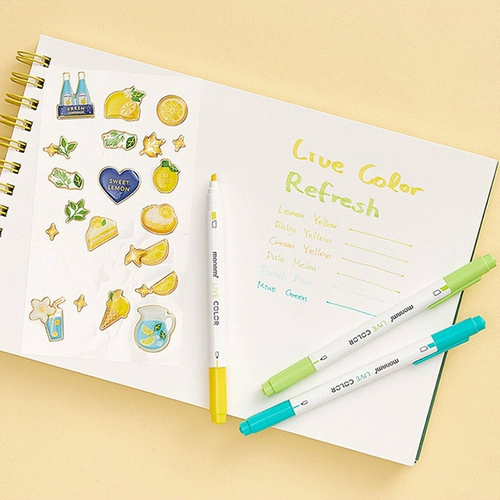 FRESH
LEMONADE
SWEET
LEMON
Live Color
Refresh
Lemon Yellow
Baby Yellow
Cream Yellow
Pale Melon
Mint Green
monami LIVE COLOR
monami LIVE COLOR
monami LIVE COLOR